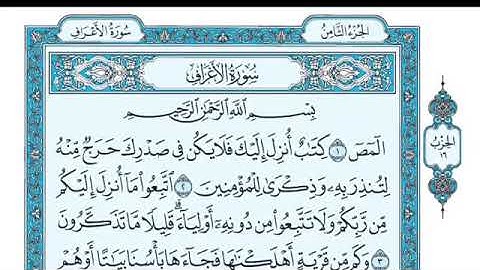 الجزء الثامن
سورة الأعراف
سُورَةُ الأَعْرَافِ
بِسْمِ اللَّهِ الرَّحْمَٰنِ الرَّحِيمِ
الٓمٓصٓ ١ كِتَٰبٌ أُنزِلَ إِلَيْكَ فَلَا يَكُن فِي صَدْرِكَ حَرَجٌ مِّنْهُ
لِتُنذِرَ بِهِۦ وَذِكْرَىٰ لِلْمُؤْمِنِينَ ٢ ٱتَّبِعُوا۟ مَآ أُنزِلَ إِلَيْكُم
مِّن رَّبِّكُمْ وَلَا تَتَّبِعُوا۟ مِن دُونِهِۦٓ أَوْلِيَآءَ ۗ قَلِيلًا مَّا تَذَكَّرُونَ
٣ وَكَم مِّن قَرْيَةٍ أَهْلَكْنَٰهَا فَجَآءَهَا بَأْسُنَا بَيَٰتًا أَوْ هُمْ
الحزب
١٦